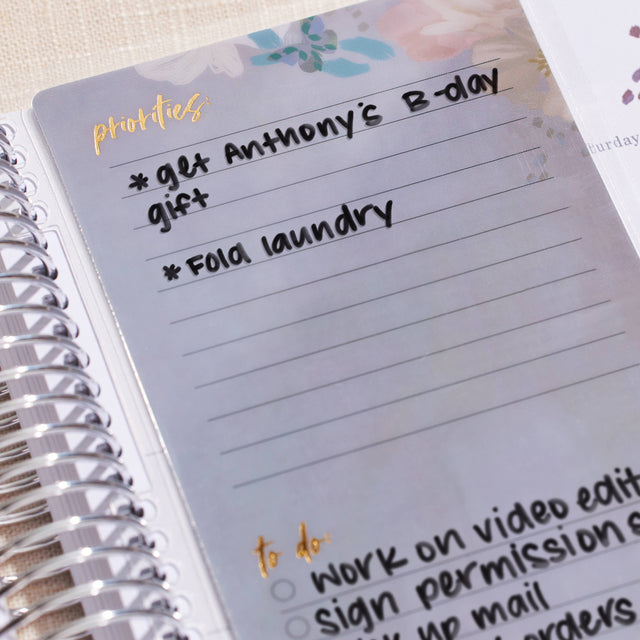 priorities
*get Anthony's B-day
gift
*Fold laundry
to do
work on video edit
sign permission s
up mail
orders
urday